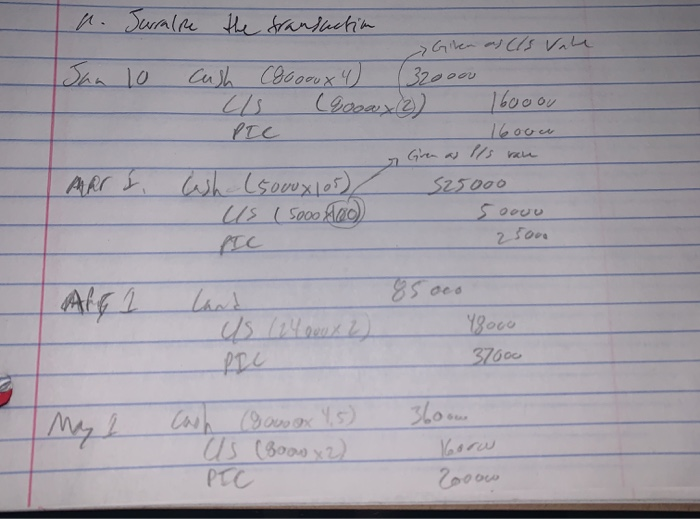 a. Juralize the transaction
Given as C/S Value
Jan 10 Cash (80000x4) 320000
C/S (80000x2) 160000
PIC 160000
Given as P/S value
Mar 1. Cash (5000x105) 525000
C/S (5000x100) 50000
PIC 25000
Apr 1 Land 85000
C/S (24000x2) 48000
PIC 37000
May 1 Cash (80000x4.5) 360000
C/S (80000x2) 160000
PIC 200000